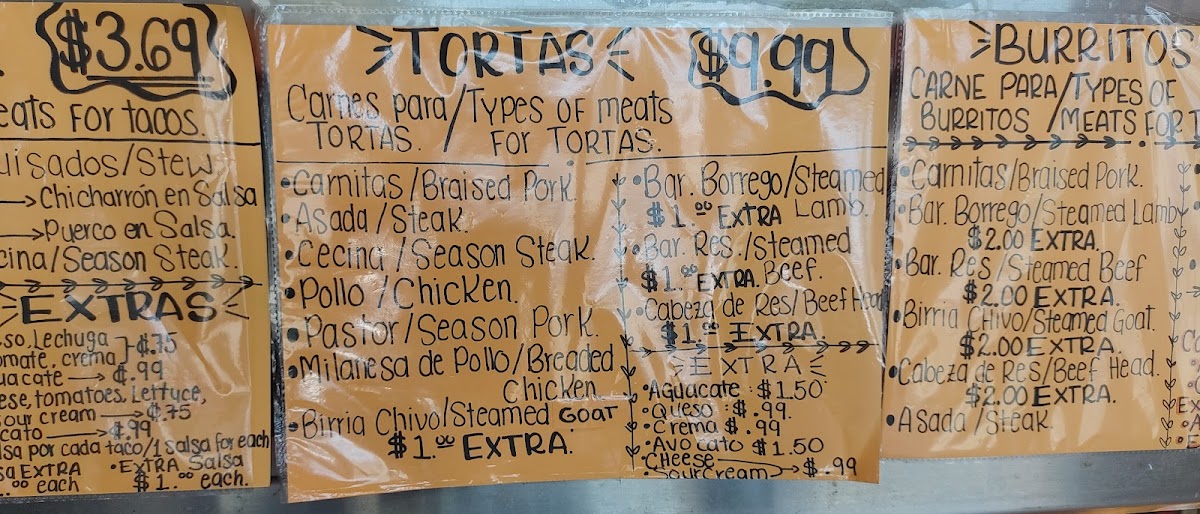 $3.69
for tacos.
/Stew
→Chicharrón en Salsa
→Puerco en Salsa.
/Season Steak.
EXTRAS
Lechuga
crema $.75
→ $.99
tomatoes, Lettuce,
sour cream → $.75
→ $.99
por cada taco/1 Salsa for each
EXTRA •EXTRA Salsa
each $1.00 each.
TORTAS $9.99
Carnes para/Types of meats
TORTAS. / For TORTAS.
•Carnitas/Braised Pork.
•Asada/Steak.
•Cecina/Season Steak.
•Pollo/Chicken.
•Pastor/Season Pork.
•Milanesa de Pollo/Breaded
Chicken.
•Birria Chivo/Steamed GOAT
$1.00 EXTRA.
•Bar. Borrego/Steamed
$1.00 EXTRA Lamb.
•Bar. Res./Steamed
$1.00 EXTRA. Beef.
•Cabeza de Res/Beef Head
$1.00 EXTRA.
EXTRA
•Aguacate: $1.50
•Queso: $.99.
•Crema $.99.
•Avocato $1.50
•CHeese
•Sour Cream → $.99
BURRITOS
CARNE PARA/TYPES OF
BURRITOS /MEATS FOR
•Carnitas/Braised Pork.
•Bar. Borrego/Steamed Lamb
$2.00 EXTRA.
•Bar. Res/Steamed Beef
$2.00 EXTRA.
•Birria CHivo/Steamed Goat.
$2.00 EXTRA.
•Cabeza de Res/Beef Head.
$2.00 EXTRA.
•Asada/Steak.